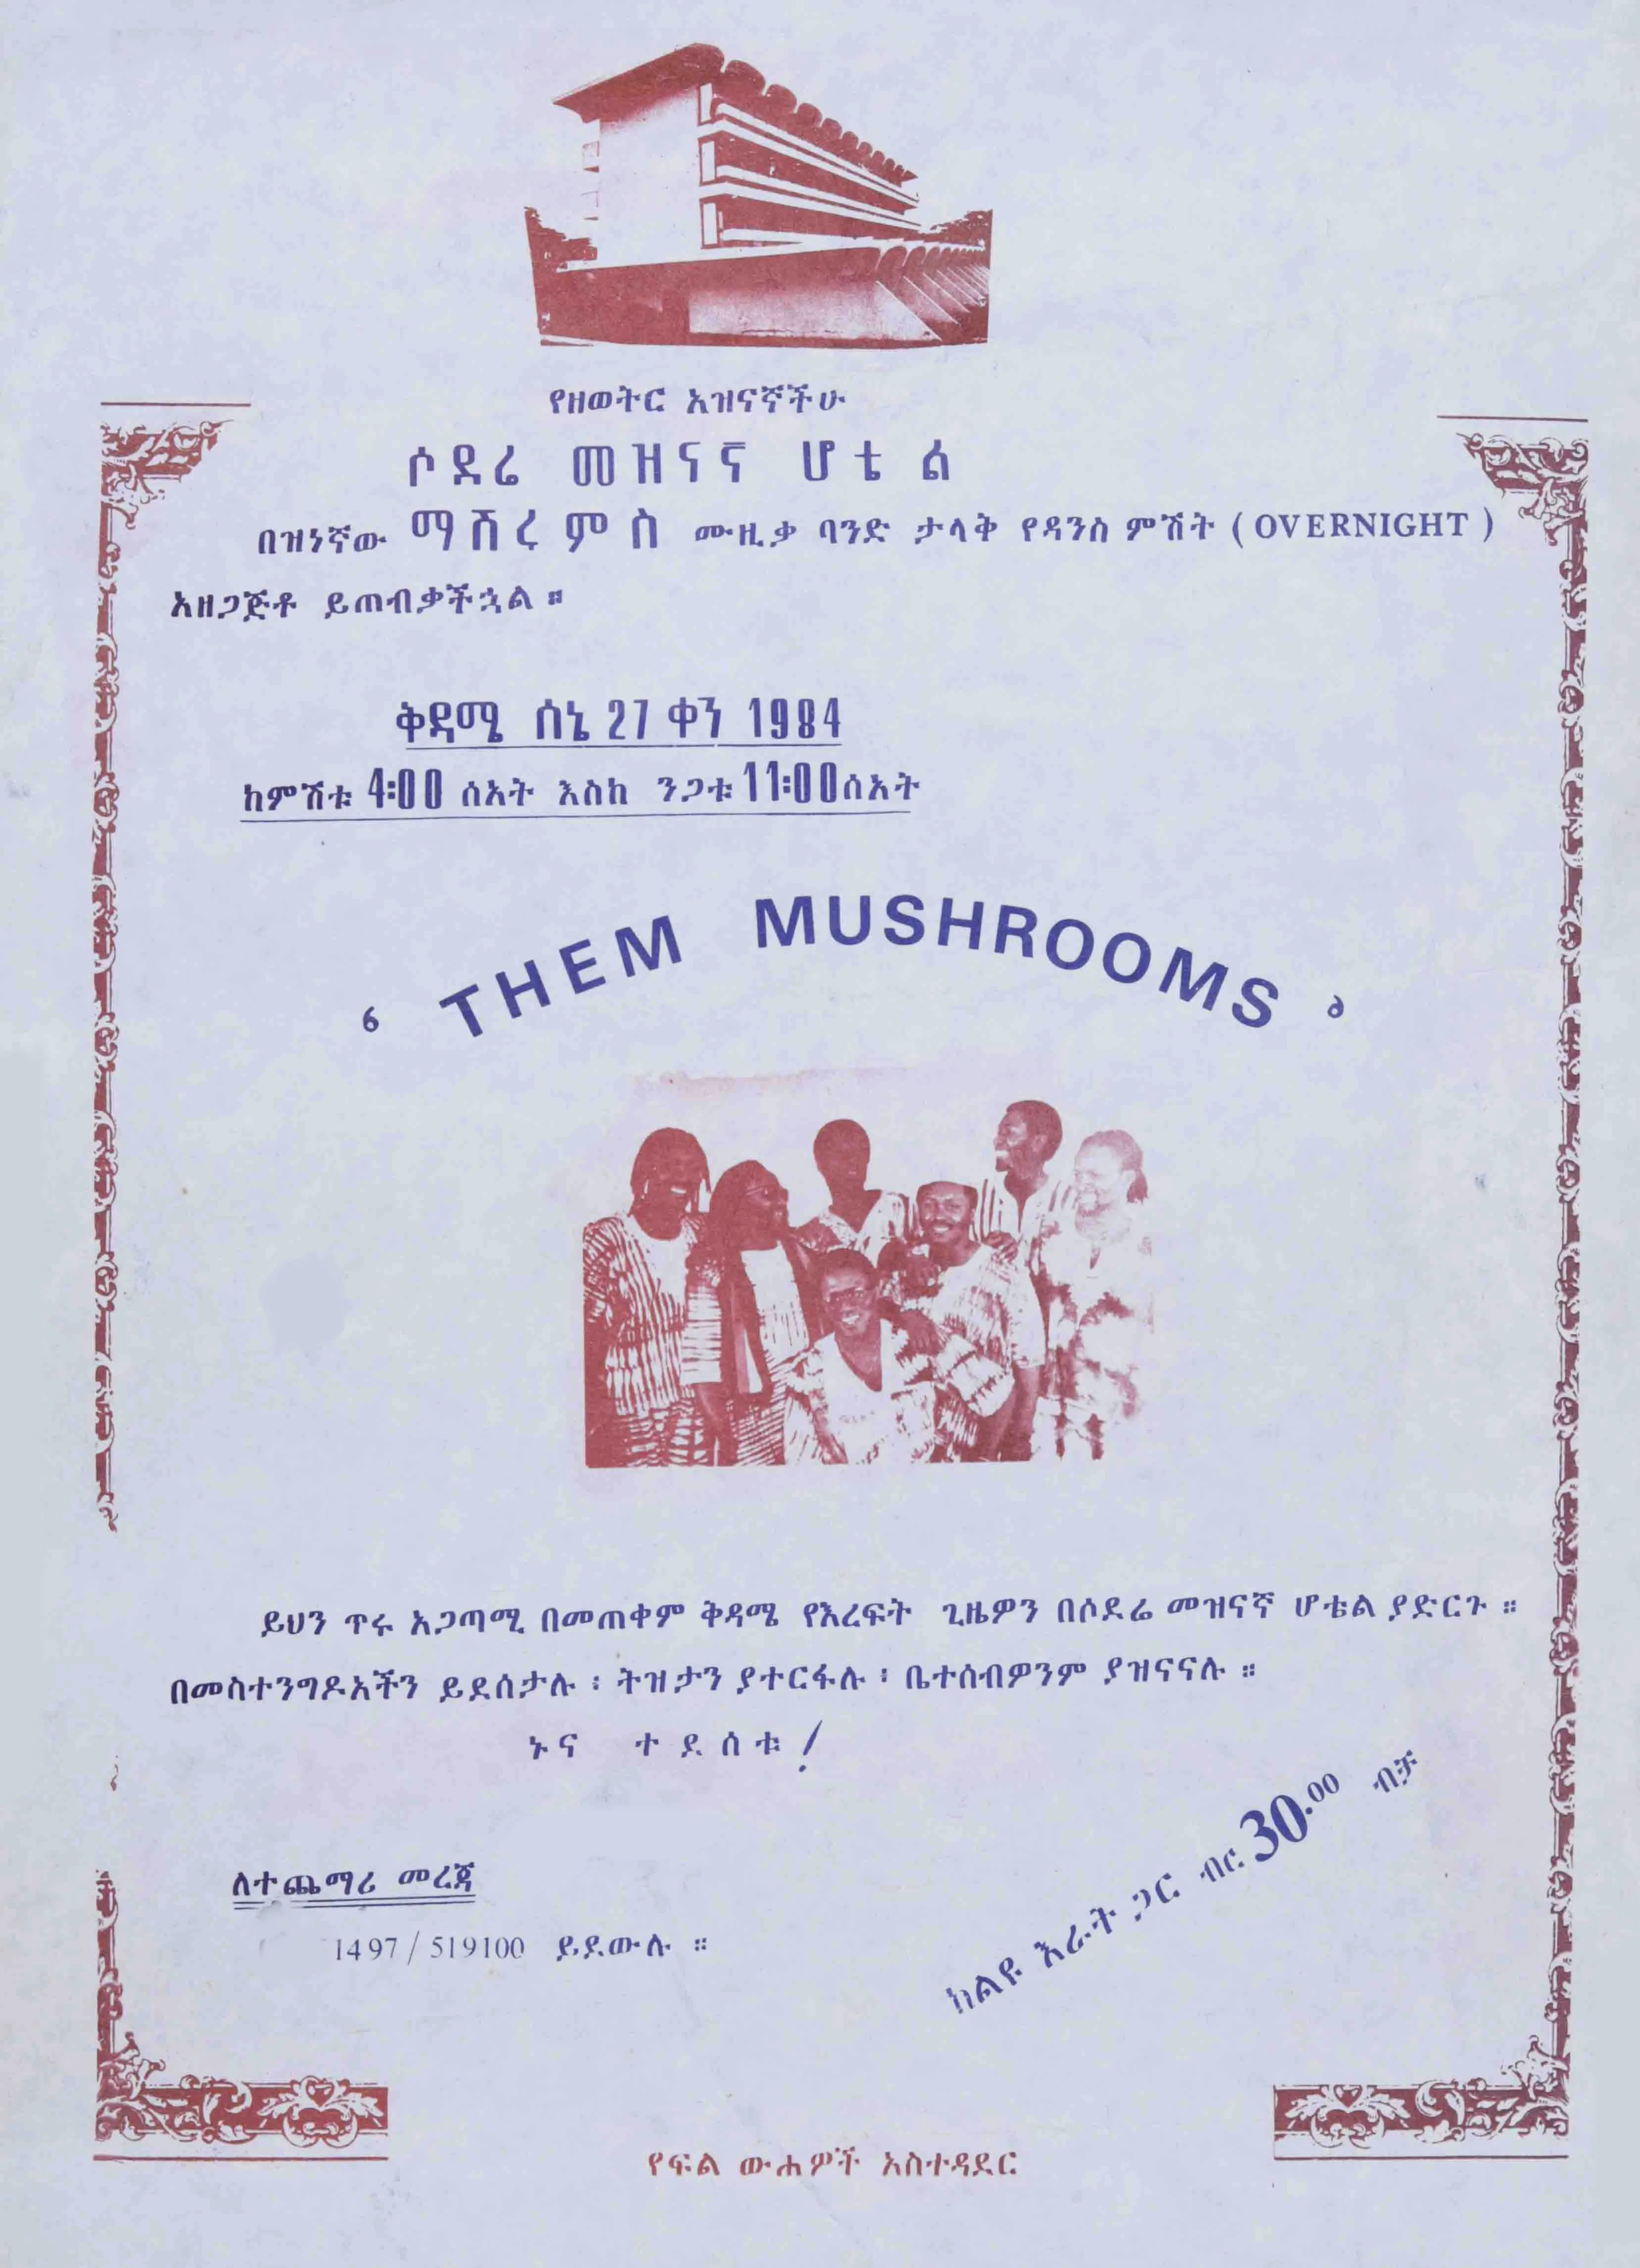 የዘወትር አዝናኛችሁ
ሶደሬ መዝናኛ ሆቴል
በዝነኛው ማሽሩምስ ሙዚቃ ባንድ ታላቅ የዳንስ ምሽት ( OVERNIGHT )
አዘጋጅቶ ይጠብቃችኋል ።
ቅዳሜ ሰኔ 27 ቀን 1984
ከምሽቱ 4:00 ሰአት እስከ ንጋቱ 11:00 ሰአት
‘ THEM MUSHROOMS ’
ይህን ጥሩ አጋጣሚ በመጠቀም ቅዳሜ የእረፍት ጊዜዎን በሶደሬ መዝናኛ ሆቴል ያድርጉ ።
በመስተንግዶአችን ይደሰታሉ ፡ ትዝታን ያተርፋሉ ፡ ቤተሰብዎንም ያዝናናሉ ።
ኑና ተደሰቱ !
ከልዩ እራት ጋር ብር 30.00 ብቻ
ለተጨማሪ መረጃ
1497 / 519100 ይደውሉ ።
የፍል ውሐዎች አስተዳደር